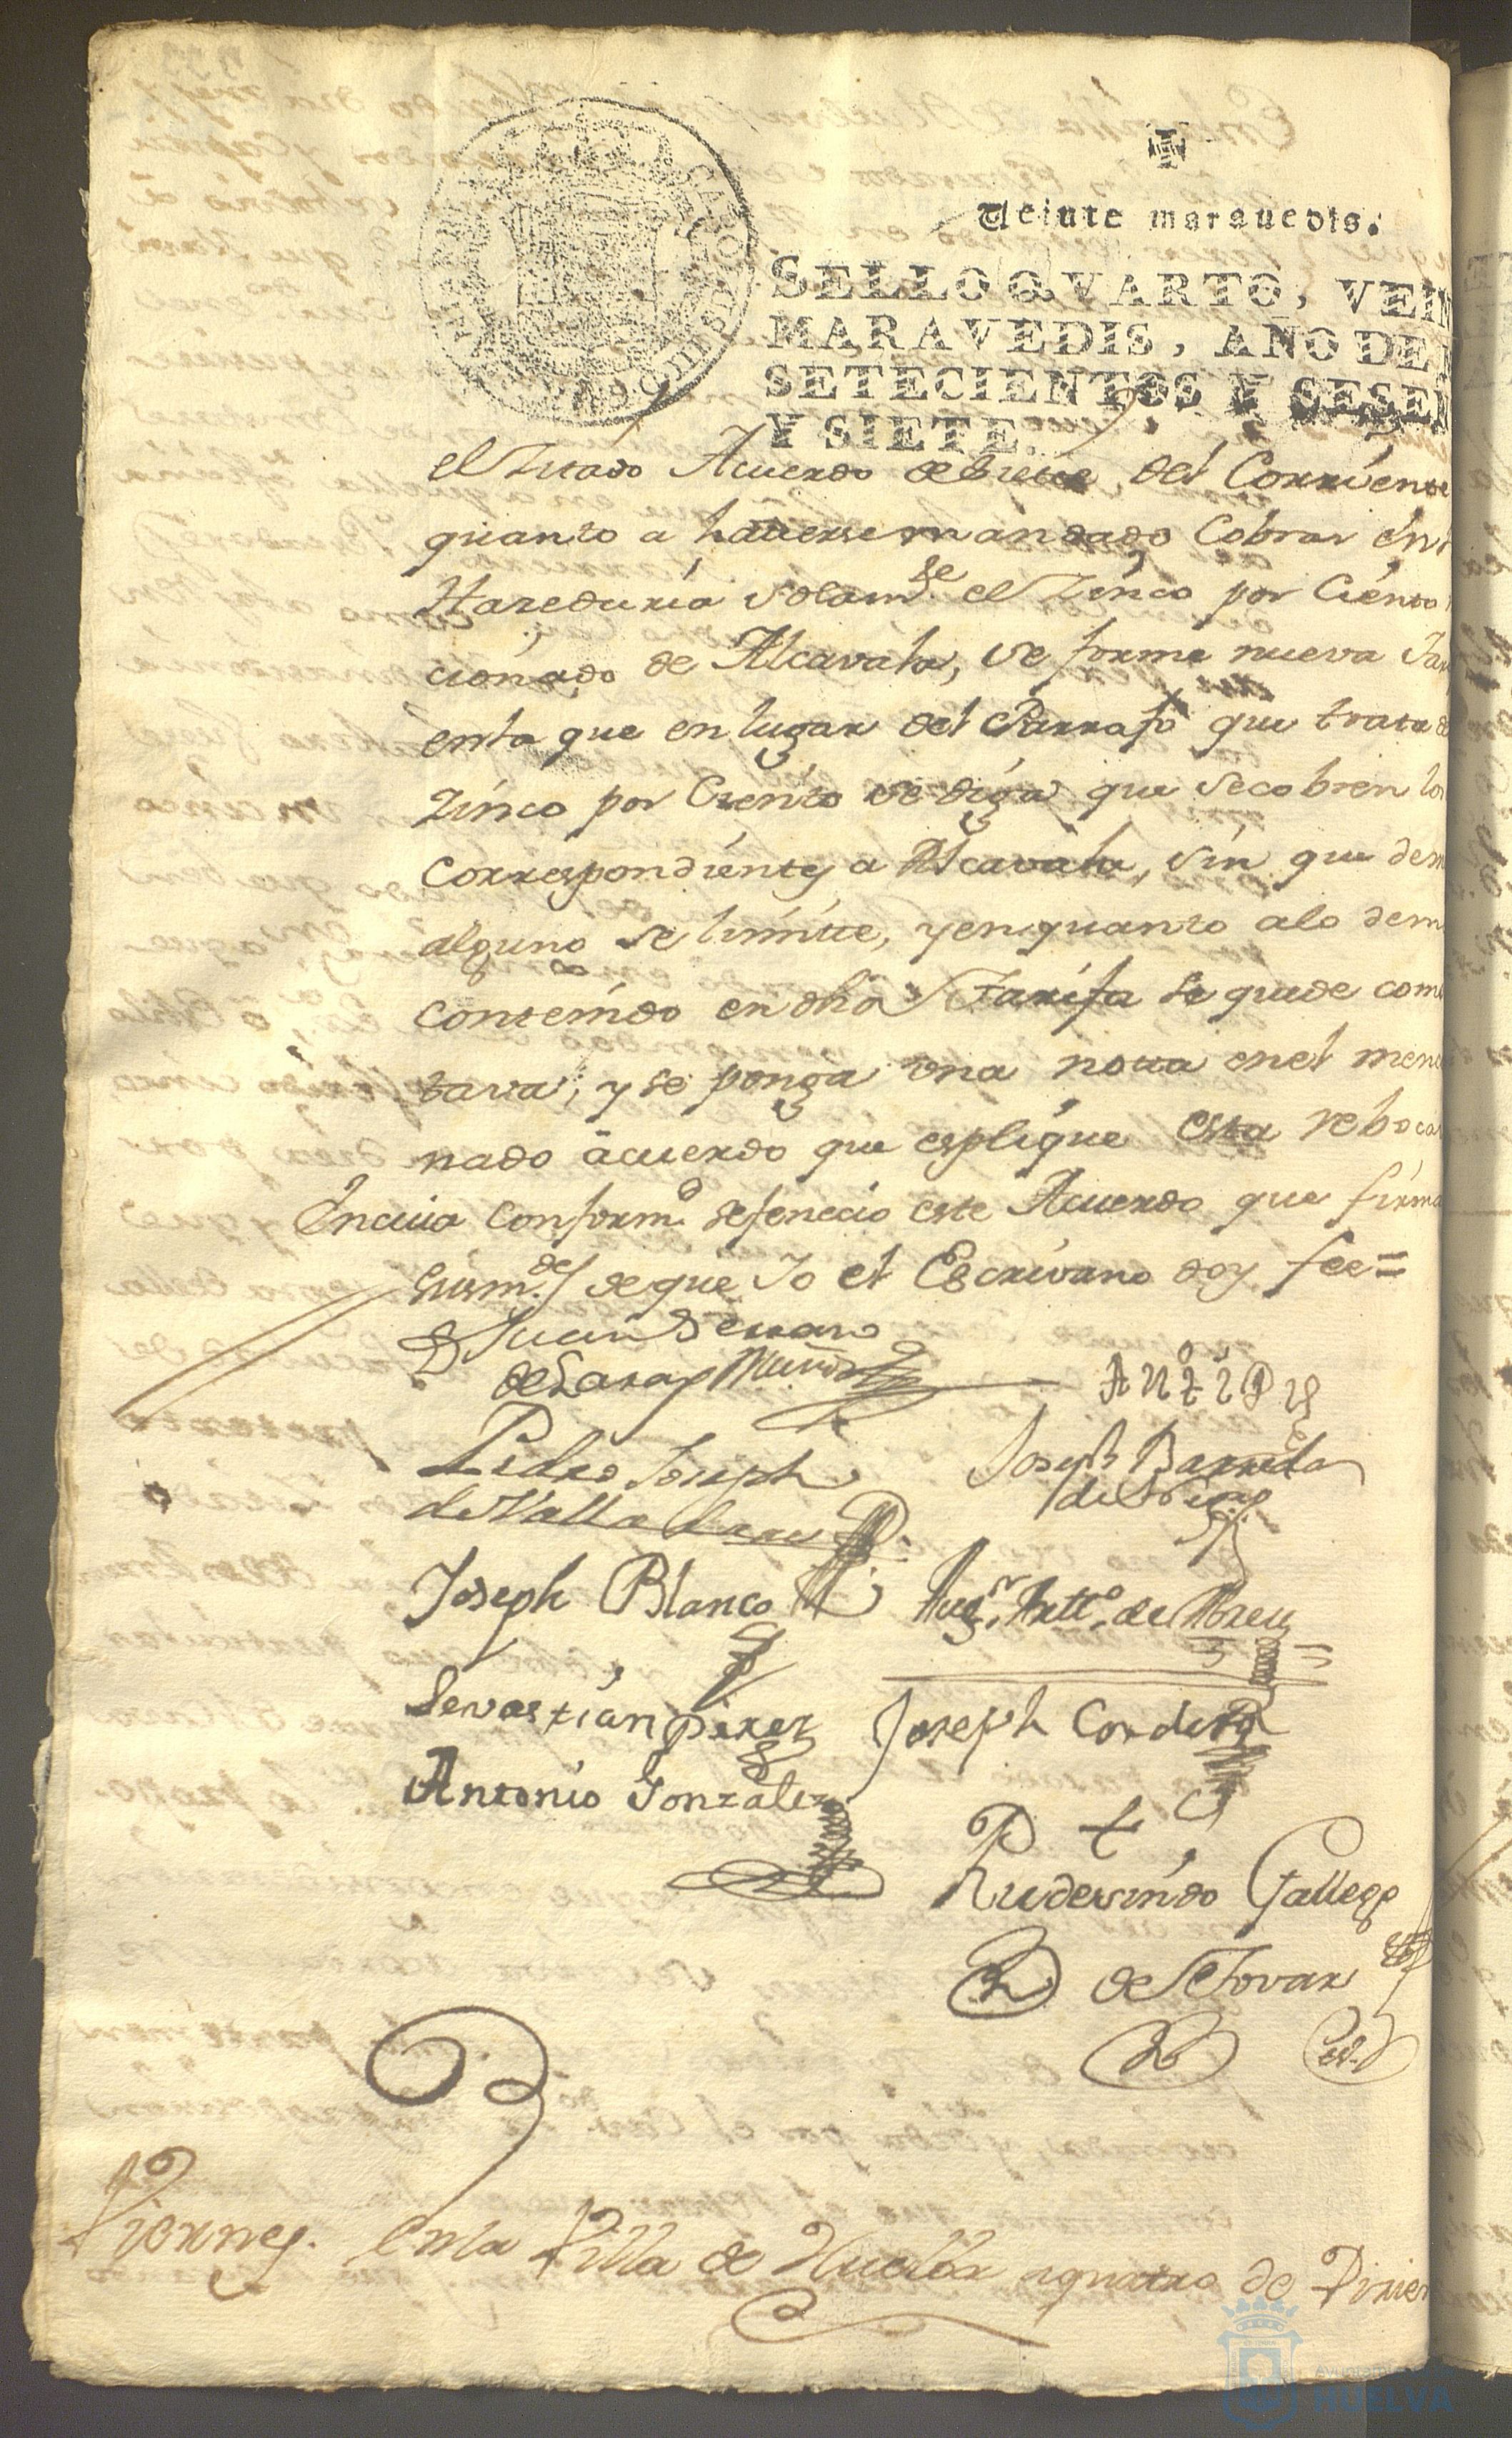 Veinte maravedis.
SELLO QVARTO, VEIN
MARAVEDIS, AÑO DE
SETECIENTOS Y SESEN
Y SIETE.
el zitado Acuerdo de siete del Corriente
quanto a haverse mandado Cobrar en
Hazeduria Solamte. el Zinco por Ciento
cionado de Alcavala, se forme nueva
enta que en lugar del Parrafo que trata
Zinco por Ciento se diga que se cobren los
correspondientes a Alcavala, sin que
alguno se limite, y en quanto alo dem
contenido en dha Tarifa se quede como
tava; y se ponga una nota en el menc
nado acuerdo que esplique esta reboca
En cuia Conformd. sefenecio este Acuerdo que firma
susmds. de que Yo el Escrivano doy fee=
Dn Juan Serrano
de Lara y Muñoz
Pedro Joseph
de Valladares
Joseph Barreda
Joseph Blanco
Augn. Antto. de
Sevastian perez
Joseph Cordero
Antonio Gonzalez
Rudesindo Gallego
de Tovar
Viernes. En la Villa de Huelba a quatro de Diziem
Ayuntamiento
HUELVA